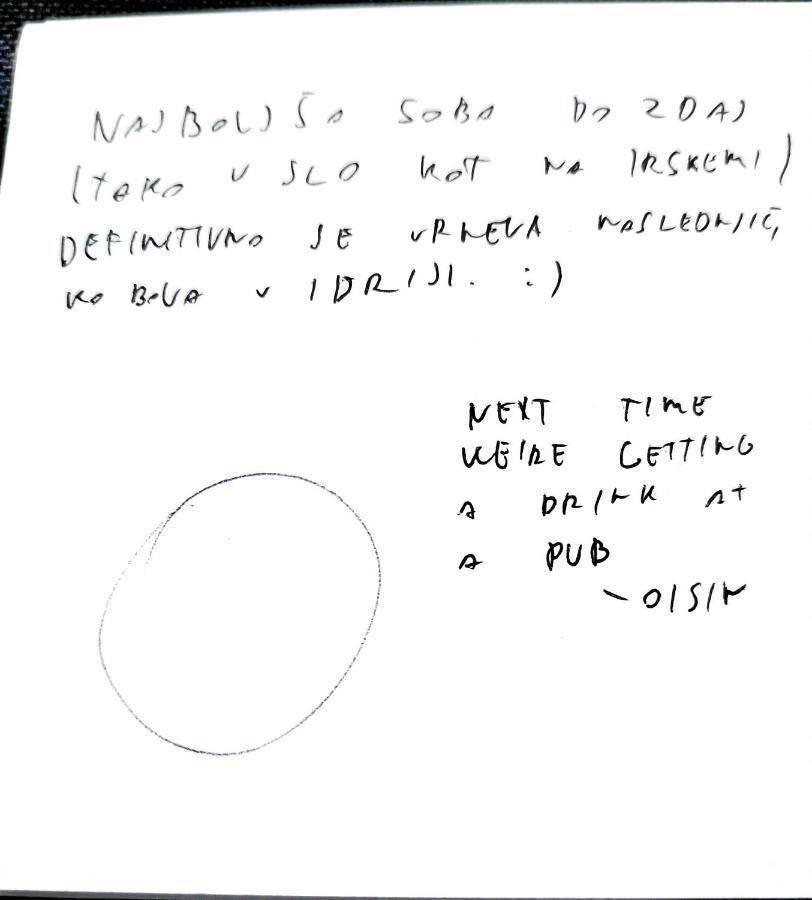 NAJBOLJŠA SOBA DO ZDAJ
(TAKO V SLO KOT NA IRSKEM!)
DEFINITIVNO SE VRNEVA NASLEDNJIČ,
KO BOVA V IDRIJI. :)
NEXT TIME
WE'RE GETTING
A DRINK AT
A PUB
- OISIN